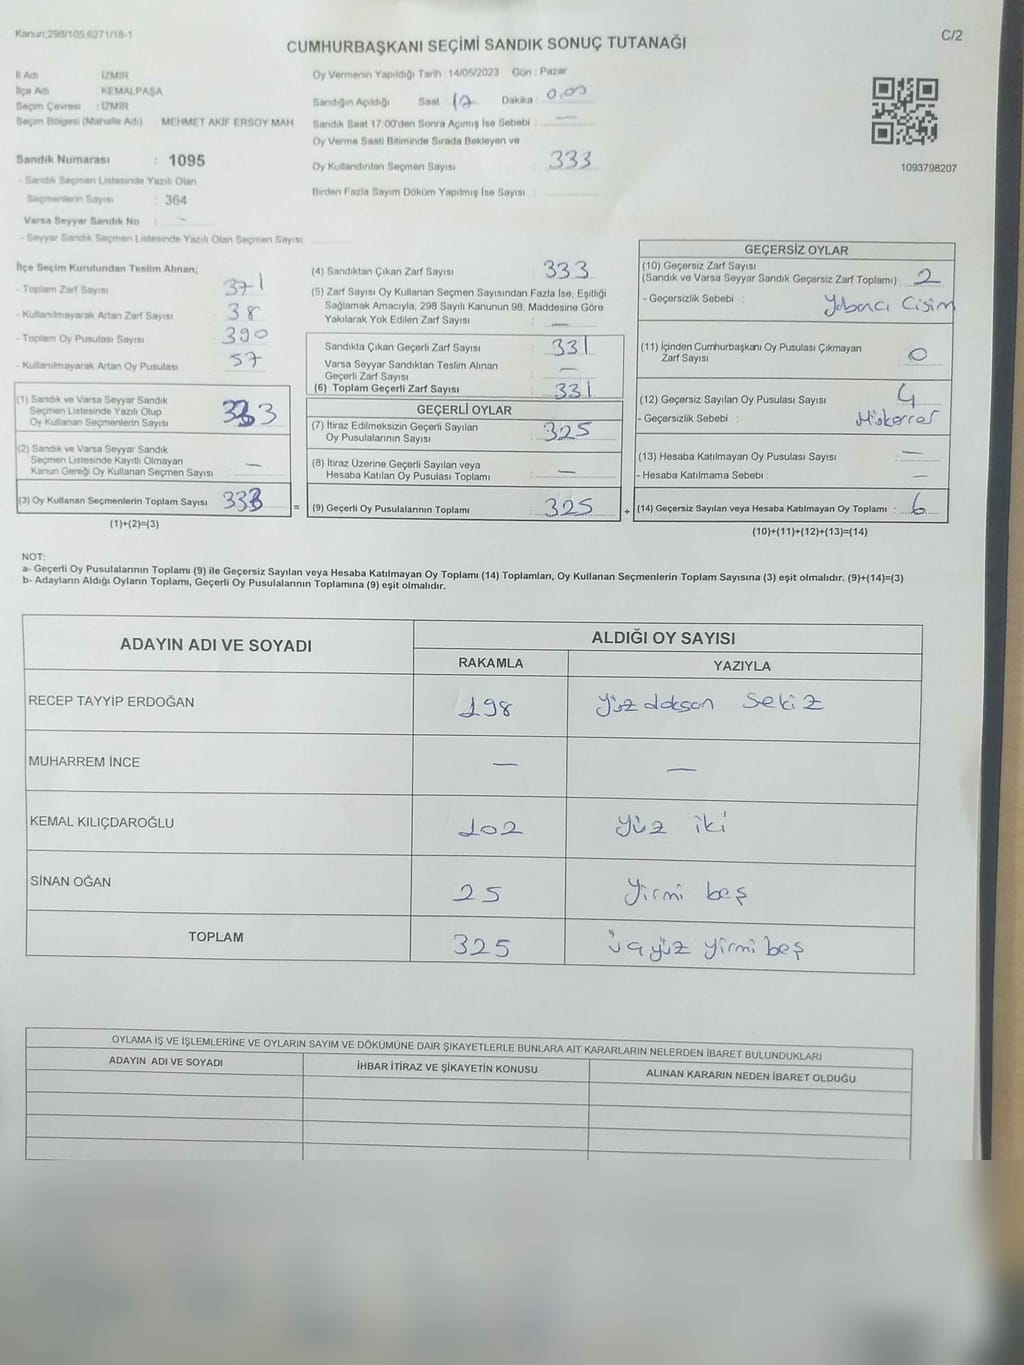 Kanun;298/105,6271/18-1
C/2
CUMHURBAŞKANI SEÇİMİ SANDIK SONUÇ TUTANAĞI
İl Adı : İZMİR
İlçe Adı : KEMALPAŞA
Seçim Çevresi : İZMİR
Seçim Bölgesi (Mahalle Adı) : MEHMET AKİF ERSOY MAH.
Sandık Numarası : 1095
- Sandık Seçmen Listesinde Yazılı Olan
Seçmenlerin Sayısı : 364
Varsa Seyyar Sandık No : -
- Seyyar Sandık Seçmen Listesinde Yazılı Olan Seçmen Sayısı :
Oy Vermenin Yapıldığı Tarih : 14/05/2023 Gün : Pazar
Sandığın Açıldığı Saat : 17 Dakika : 0,00
Sandık Saat 17:00'den Sonra Açımış İse Sebebi : —
Oy Verme Saati Bitiminde Sırada Bekleyen ve
Oy Kullandırılan Seçmen Sayısı : 333
Birden Fazla Sayım Döküm Yapılmış İse Sayısı :
1093798207
İlçe Seçim Kurulundan Teslim Alınan;
- Toplam Zarf Sayısı : 371
- Kullanılmayarak Artan Zarf Sayısı : 38
- Toplam Oy Pusulası Sayısı : 390
- Kullanılmayarak Artan Oy Pusulası : 57
(1) Sandık ve Varsa Seyyar Sandık
Seçmen Listesinde Yazılı Olup
Oy Kullanan Seçmenlerin Sayısı : 333
(2) Sandık ve Varsa Seyyar Sandık
Seçmen Listesinde Kayıtlı Olmayan
Kanun Gereği Oy Kullanan Seçmen Sayısı : —
(3) Oy Kullanan Seçmenlerin Toplam Sayısı : 333
(1)+(2)=(3)
(4) Sandıktan Çıkan Zarf Sayısı : 333
(5) Zarf Sayısı Oy Kullanan Seçmen Sayısından Fazla İse, Eşitliği
Sağlamak Amacıyla; 298 Sayılı Kanunun 98. Maddesine Göre
Yakılarak Yok Edilen Zarf Sayısı : —
Sandıkta Çıkan Geçerli Zarf Sayısı : 331
Varsa Seyyar Sandıktan Teslim Alınan
Geçerli Zarf Sayısı : —
(6) Toplam Geçerli Zarf Sayısı : 331
GEÇERLİ OYLAR
(7) İtiraz Edilmeksizin Geçerli Sayılan
Oy Pusulalarının Sayısı : 325
(8) İtiraz Üzerine Geçerli Sayılan veya
Hesaba Katılan Oy Pusulası Toplamı : —
= (9) Geçerli Oy Pusulalarının Toplamı : 325
GEÇERSİZ OYLAR
(10) Geçersiz Zarf Sayısı
(Sandık ve Varsa Seyyar Sandık Geçersiz Zarf Toplamı) : 2
- Geçersizlik Sebebi : Yabancı Cisim
(11) İçinden Cumhurbaşkanı Oy Pusulası Çıkmayan
Zarf Sayısı : 0
(12) Geçersiz Sayılan Oy Pusulası Sayısı : 4
- Geçersizlik Sebebi : Mükerrer
(13) Hesaba Katılmayan Oy Pusulası Sayısı : —
- Hesaba Katılmama Sebebi : —
+ (14) Geçersiz Sayılan veya Hesaba Katılmayan Oy Toplamı : 6
(10)+(11)+(12)+(13)=(14)
NOT:
a- Geçerli Oy Pusulalarının Toplamı (9) ile Geçersiz Sayılan veya Hesaba Katılmayan Oy Toplamı (14) Toplamları, Oy Kullanan Seçmenlerin Toplam Sayısına (3) eşit olmalıdır. (9)+(14)=(3)
b- Adayların Aldığı Oyların Toplamı, Geçerli Oy Pusulalarının Toplamına (9) eşit olmalıdır.
ADAYIN ADI VE SOYADI
ALDIĞI OY SAYISI
RAKAMLA YAZIYLA
RECEP TAYYİP ERDOĞAN 198 Yüz doksan sekiz
MUHARREM İNCE — —
KEMAL KILIÇDAROĞLU 102 Yüz iki
SİNAN OĞAN 25 Yirmi beş
TOPLAM 325 üçyüz yirmi beş
OYLAMA İŞ VE İŞLEMLERİNE VE OYLARIN SAYIM VE DÖKÜMÜNE DAİR ŞİKAYETLERLE BUNLARA AİT KARARLARIN NELERDEN İBARET BULUNDUKLARI
ADAYIN ADI VE SOYADI İHBAR İTİRAZ VE ŞİKAYETİN KONUSU ALINAN KARARIN NEDEN İBARET OLDUĞU